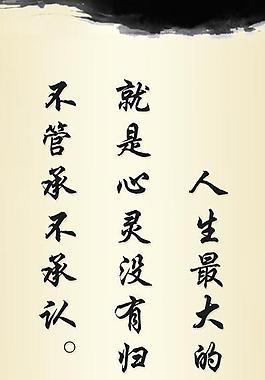 人生最大的
就是心灵没有归
不管承不承认。